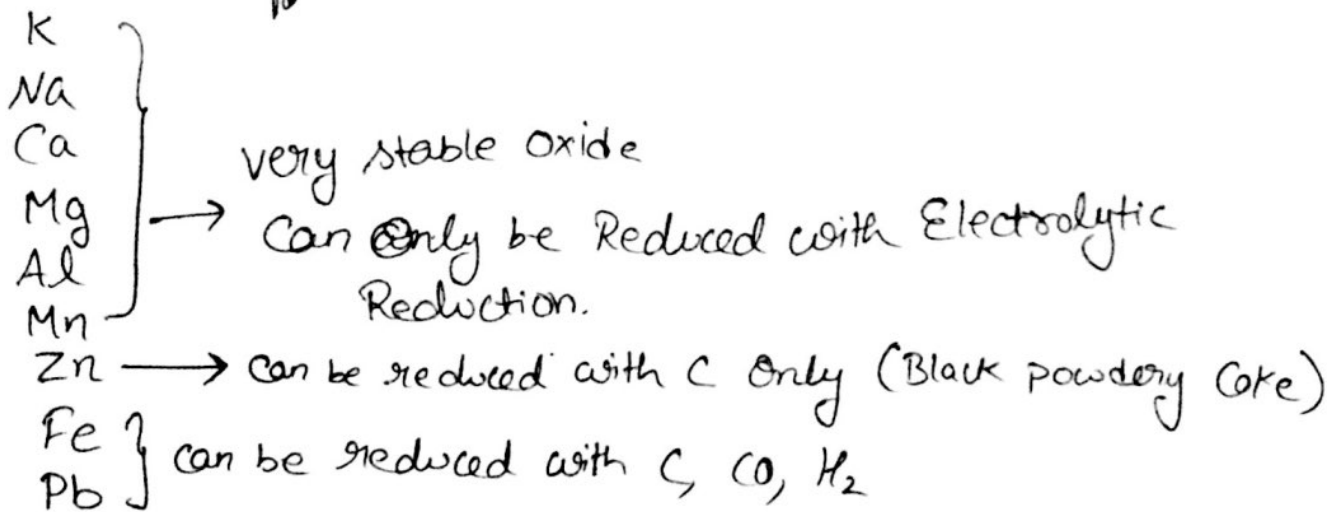 K
Na
Ca
Mg
Al
Mn
→ very stable oxide
Can Only be Reduced with Electrolytic
Reduction.
Zn → can be reduced with C Only (Black powdery Coke)
Fe
Pb
} can be reduced with C, CO, H₂